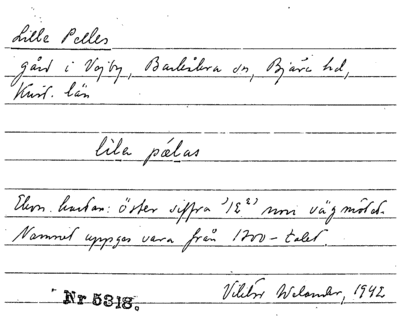 Lille Pelles
gård i Vejby, Barkåkra sn, Bjäre hd,
Krist. län
lilа pælas
Ekon. kartan: öster siffra "12²" norr vägmötet.
Namnet uppges vara från 1700-talet.
Nr 5318.
Viktor Welander, 1942